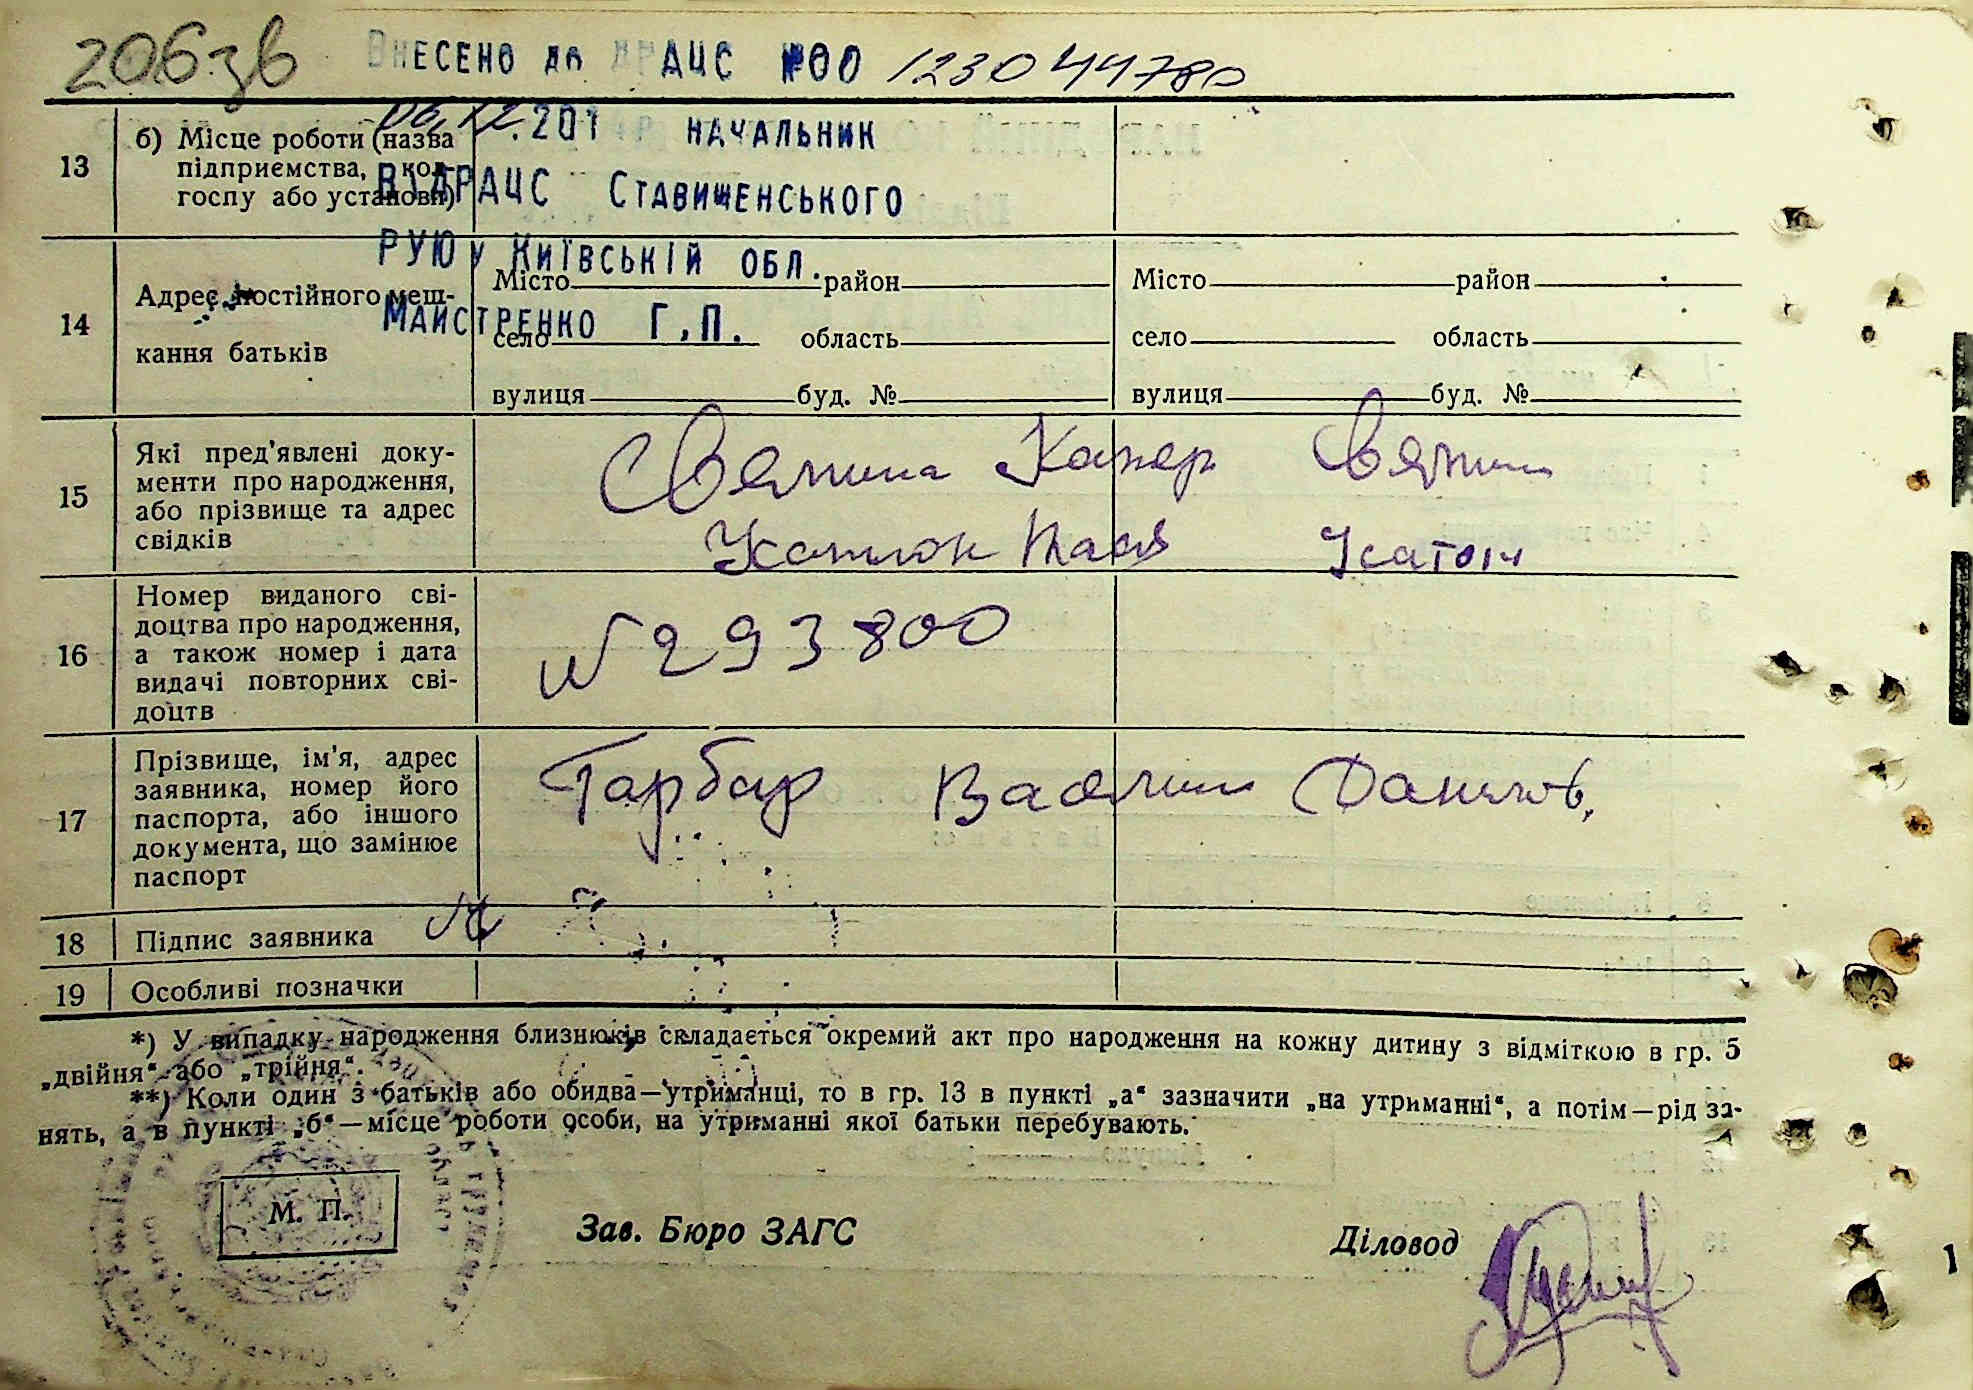 206зв ВНЕСЕНО до ДРАЦС №00 123044780
06.12.201 р НАЧАЛЬНИК
ВДРАЦС СТАВИЩЕНСЬКОГО
РУЮ у КИЇВСЬКІЙ ОБЛ.
МАЙСТРЕНКО Г.П.
13 б) Місце роботи (назва
підприємства, кол-
госпу або установи)
14 Адрес постійного меш-
кання батьків
Місто район Місто район
село область село область
вулиця буд. № вулиця буд. №
15 Які пред'явлені доку-
менти про народження,
або прізвище та адрес
свідків
16 Номер виданого сві-
доцтва про народження,
а також номер і дата
видачі повторних сві-
доцтв
№ 293800
17 Прізвище, ім'я, адрес
заявника, номер його
паспорта, або іншого
документа, що замінює
паспорт
Гарбар
18 Підпис заявника
19 Особливі позначки
*) У випадку народження близнюків складається окремий акт про народження на кожну дитину з відміткою в гр. 5
„двійня“ або „трійня“.
**) Коли один з батьків або обидва—утриманці, то в гр. 13 в пункті „а“ зазначити „на утриманні“, а потім—рід за-
нять, а в пункті „б“—місце роботи особи, на утриманні якої батьки перебувають.
М. П. Зав. Бюро ЗАГС Діловод